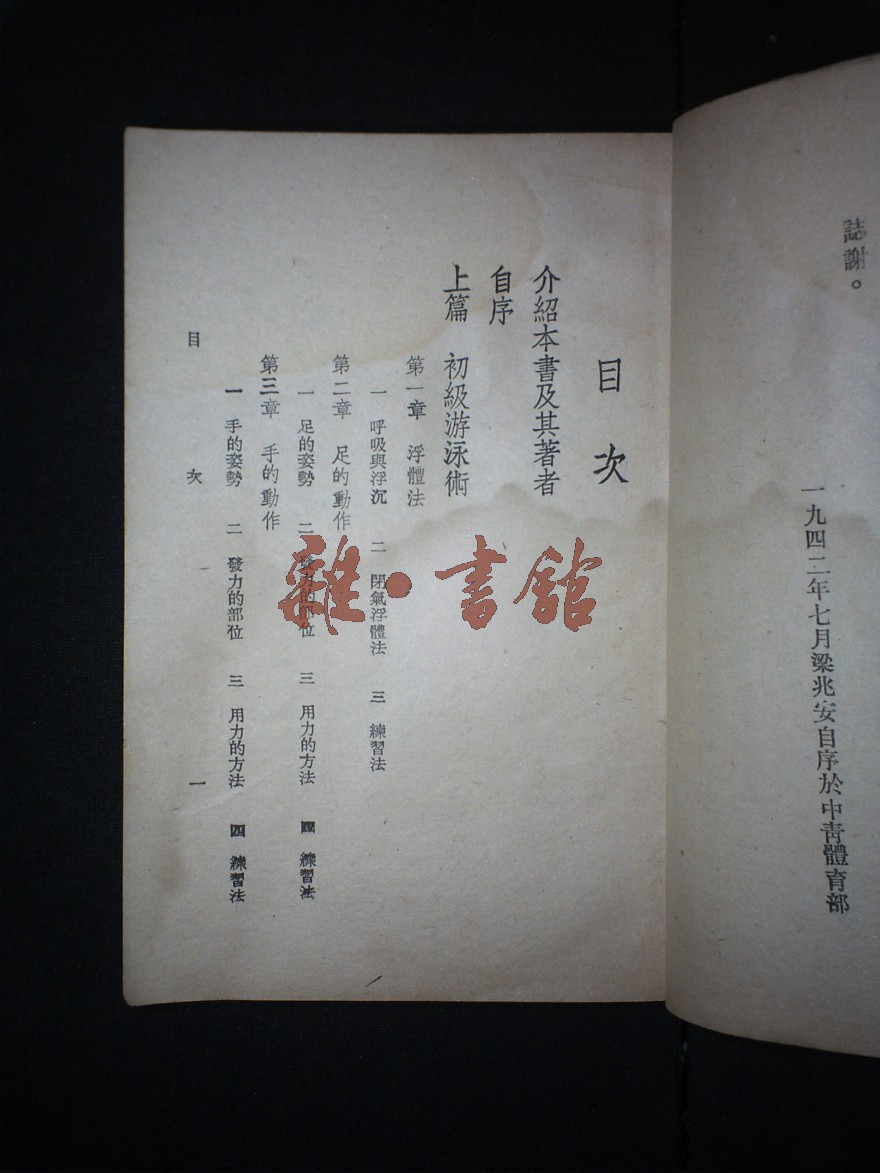 誌謝。
一九四二年七月梁兆安自序於中青體育部
目次
介紹本書及其著者
自序
上篇 初級游泳術
第一章 浮體法
一 呼吸與浮沉 二 閉氣浮體法 三 練習法
第二章 足的動作
一 足的姿勢 二 發力的部位 三 用力的方法 四 練習法
第三章 手的動作
一 手的姿勢 二 發力的部位 三 用力的方法 四 練習法
目次 一
雜·書館